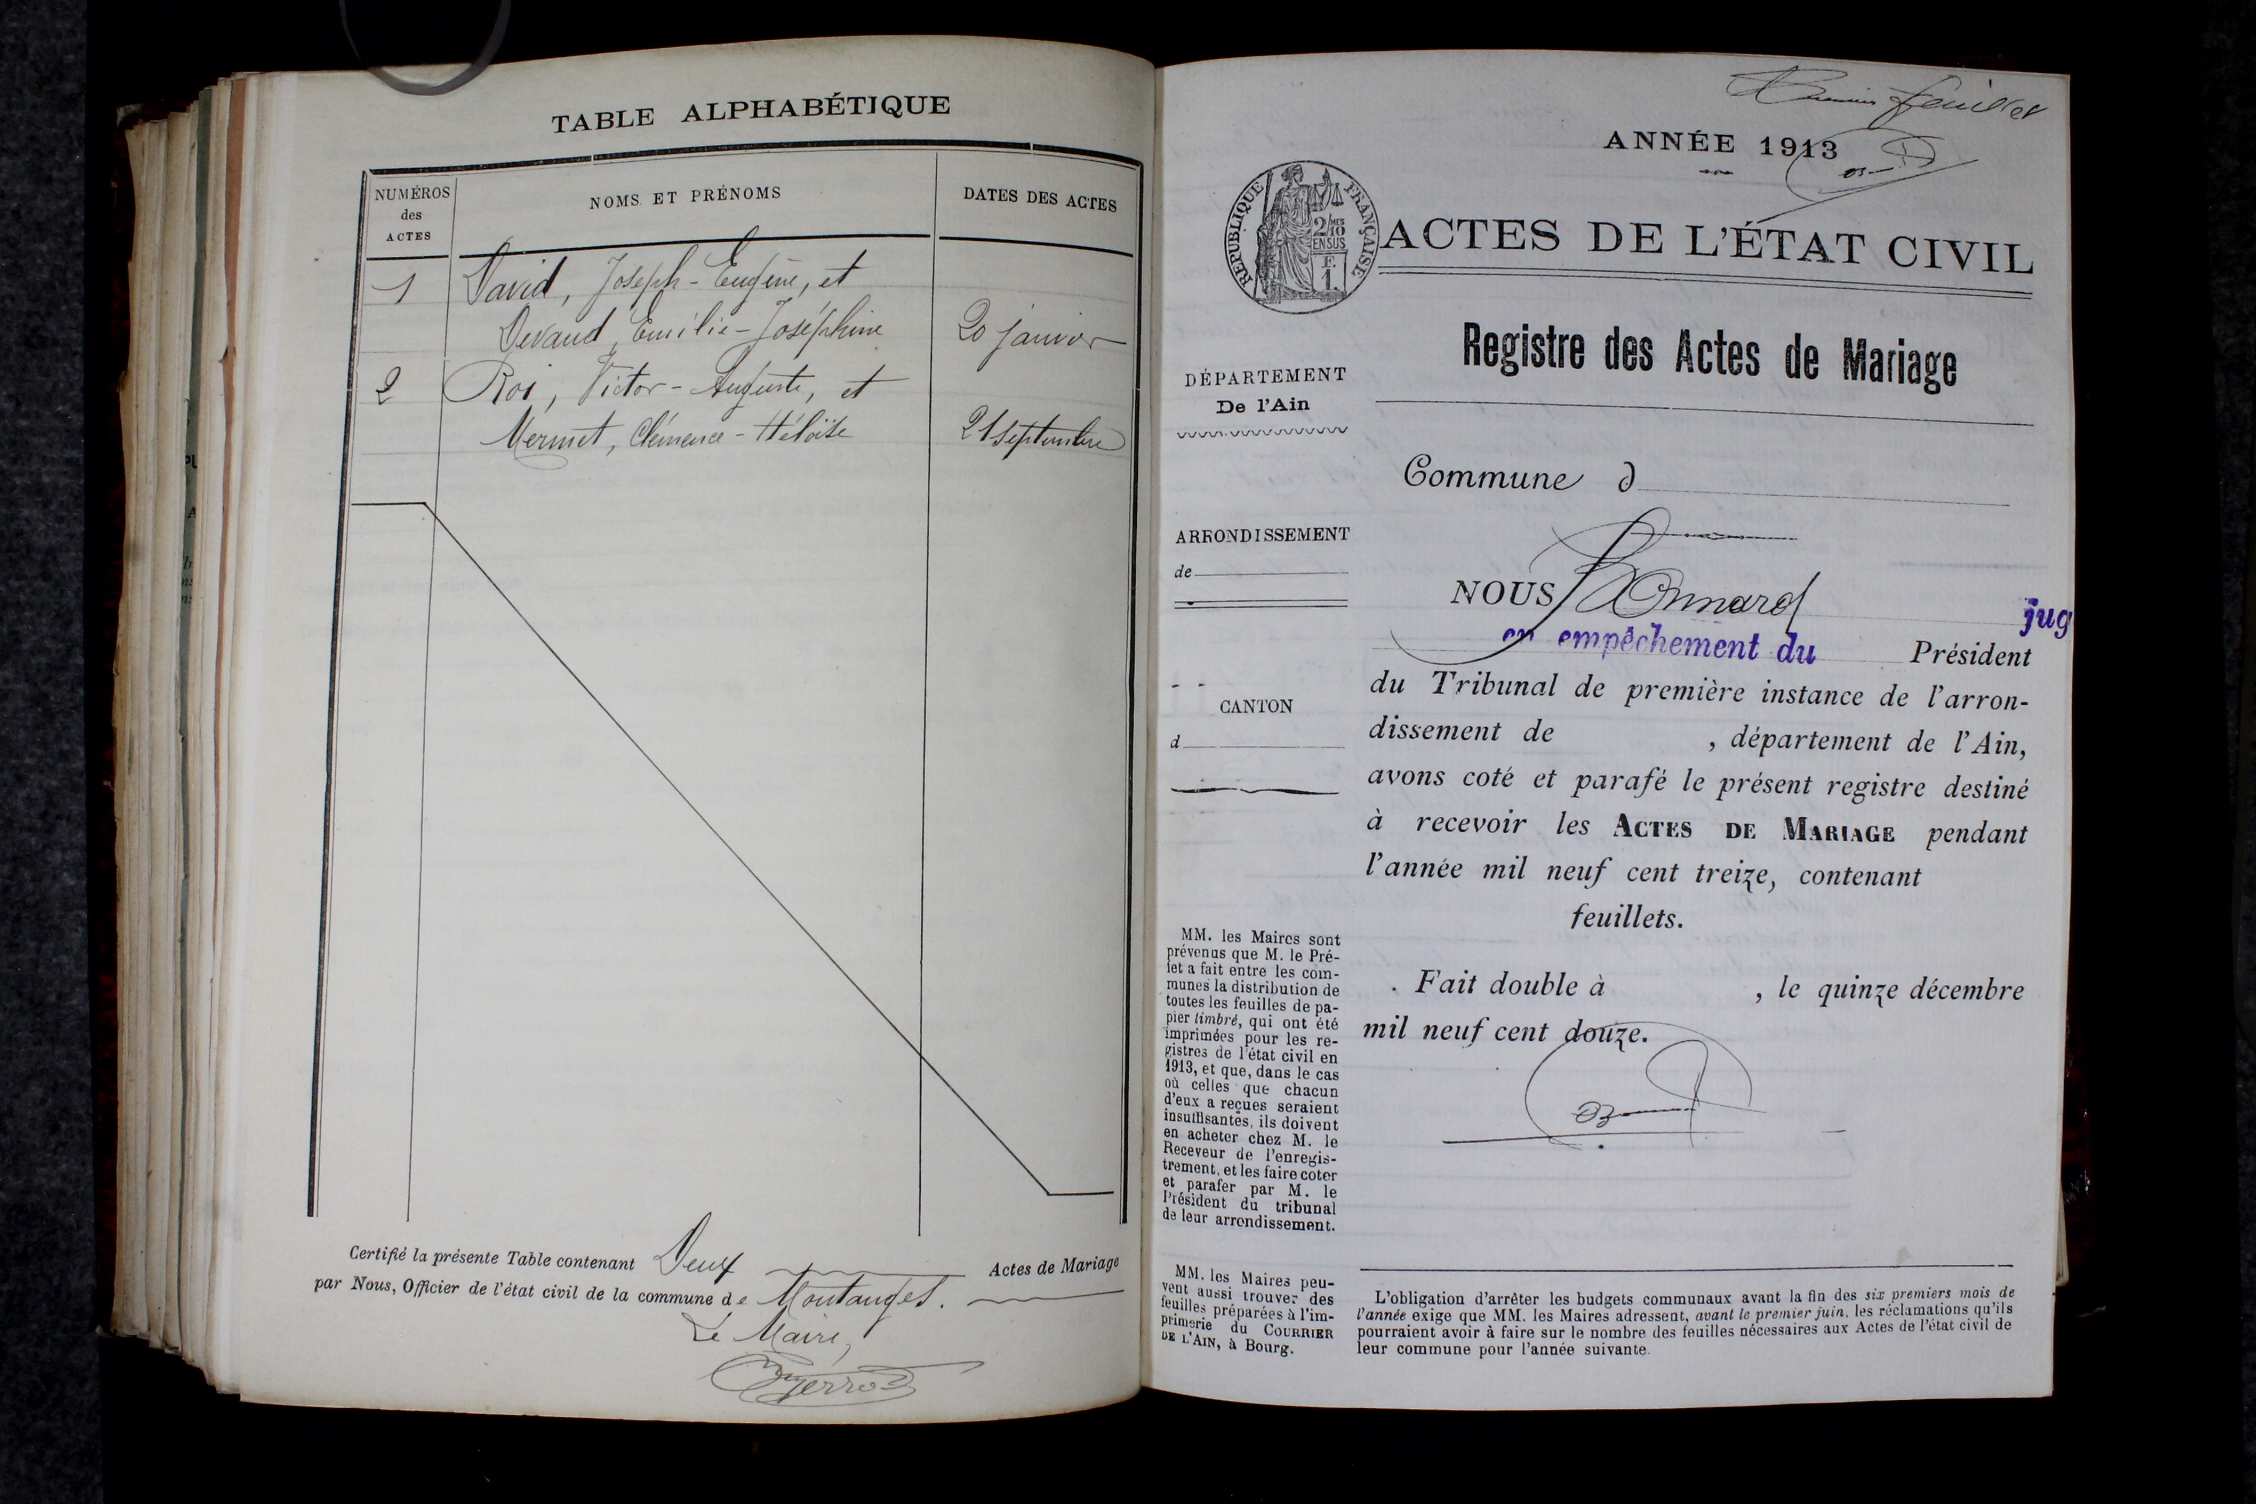 TABLE ALPHABÉTIQUE
NUMÉROS
des
ACTES
NOMS ET PRÉNOMS
DATES DES ACTES
1 David, Joseph-Eugène, et
Devaud, Emilie-Joséphine 20 janvier
2 Roi, Victor-Auguste, et
Mermet, Clémence-Héloïse 21 septembre
Certifié la présente Table contenant Deux Actes de Mariage
par Nous, Officier de l'état civil de la commune de Montanges.
Le Maire,
feuillet
ANNÉE 1913
RÉPUBLIQUE FRANÇAISE
2/10
EN SUS
F.
1.
ACTES DE L'ÉTAT CIVIL
Registre des Actes de Mariage
DÉPARTEMENT
De l'Ain
Commune d
ARRONDISSEMENT
de
NOUS Bonnard jug
en empêchement du Président
CANTON
d
du Tribunal de première instance de l'arron-
dissement de , département de l'Ain,
avons coté et parafé le présent registre destiné
à recevoir les ACTES DE MARIAGE pendant
l'année mil neuf cent treize, contenant
feuillets.
Fait double à , le quinze décembre
mil neuf cent douze.
MM. les Maires sont
prévenus que M. le Pré-
fet a fait entre les com-
munes la distribution de
toutes les feuilles de pa-
pier timbré, qui ont été
imprimées pour les re-
gistres de l'état civil en
1913, et que, dans le cas
où celles que chacun
d'eux a reçues seraient
insuffisantes, ils doivent
en acheter chez M. le
Receveur de l'enregis-
trement, et les faire coter
et parafer par M. le
Président du tribunal
de leur arrondissement.
MM. les Maires peu-
vent aussi trouver des
feuilles préparées à l'im-
primerie du COURRIER
DE L'AIN, à Bourg.
L'obligation d'arrêter les budgets communaux avant la fin des six premiers mois de
l'année exige que MM. les Maires adressent, avant le premier juin, les réclamations qu'ils
pourraient avoir à faire sur le nombre des feuilles nécessaires aux Actes de l'état civil de
leur commune pour l'année suivante.